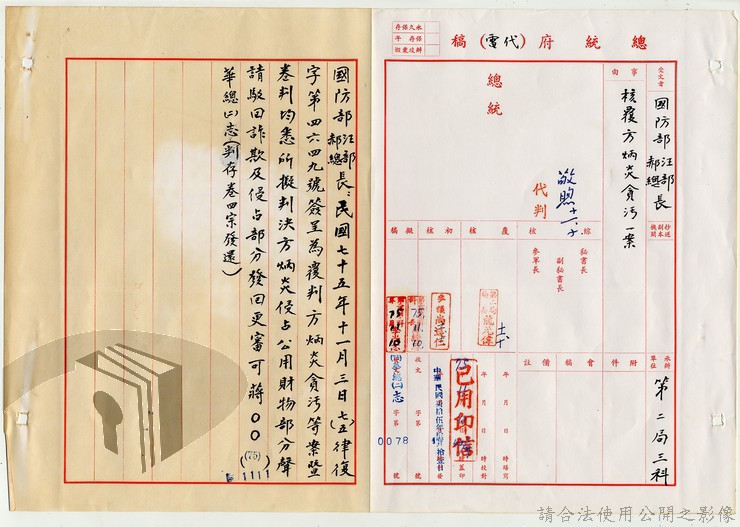 總統府(代電)稿
永久保存
保存 年
辦後彙銷
受文者
國防部汪部長
郝總長
抄送副本機關
事由
核覆方炳炎貪污一案
總統
代判
敬煦
擬稿
核初
核覆
核綜
秘書長
副秘書長
參軍長
承辦單位
第二局三科
附件
會稿
備註
年 月 日 時繕寫
年 月 日 時校對
已用印信
蓋印
75.11.10.
75.11.10
中華民國柒拾伍年
收文 字第 號
發文 字第 號
0078
國防部汪部長
郝總長:民國七十五年十一月三日(七五)律復
字第四六四九號簽呈為覆判方炳炎貪污等案暨
卷判均悉所擬判決方炳炎侵占公用財物部分聲
請駁回詐欺及侵占部分發回更審可蔣〇〇(75)1111
華總㈡志(判存卷四宗發還)
請合法使用公開之影像